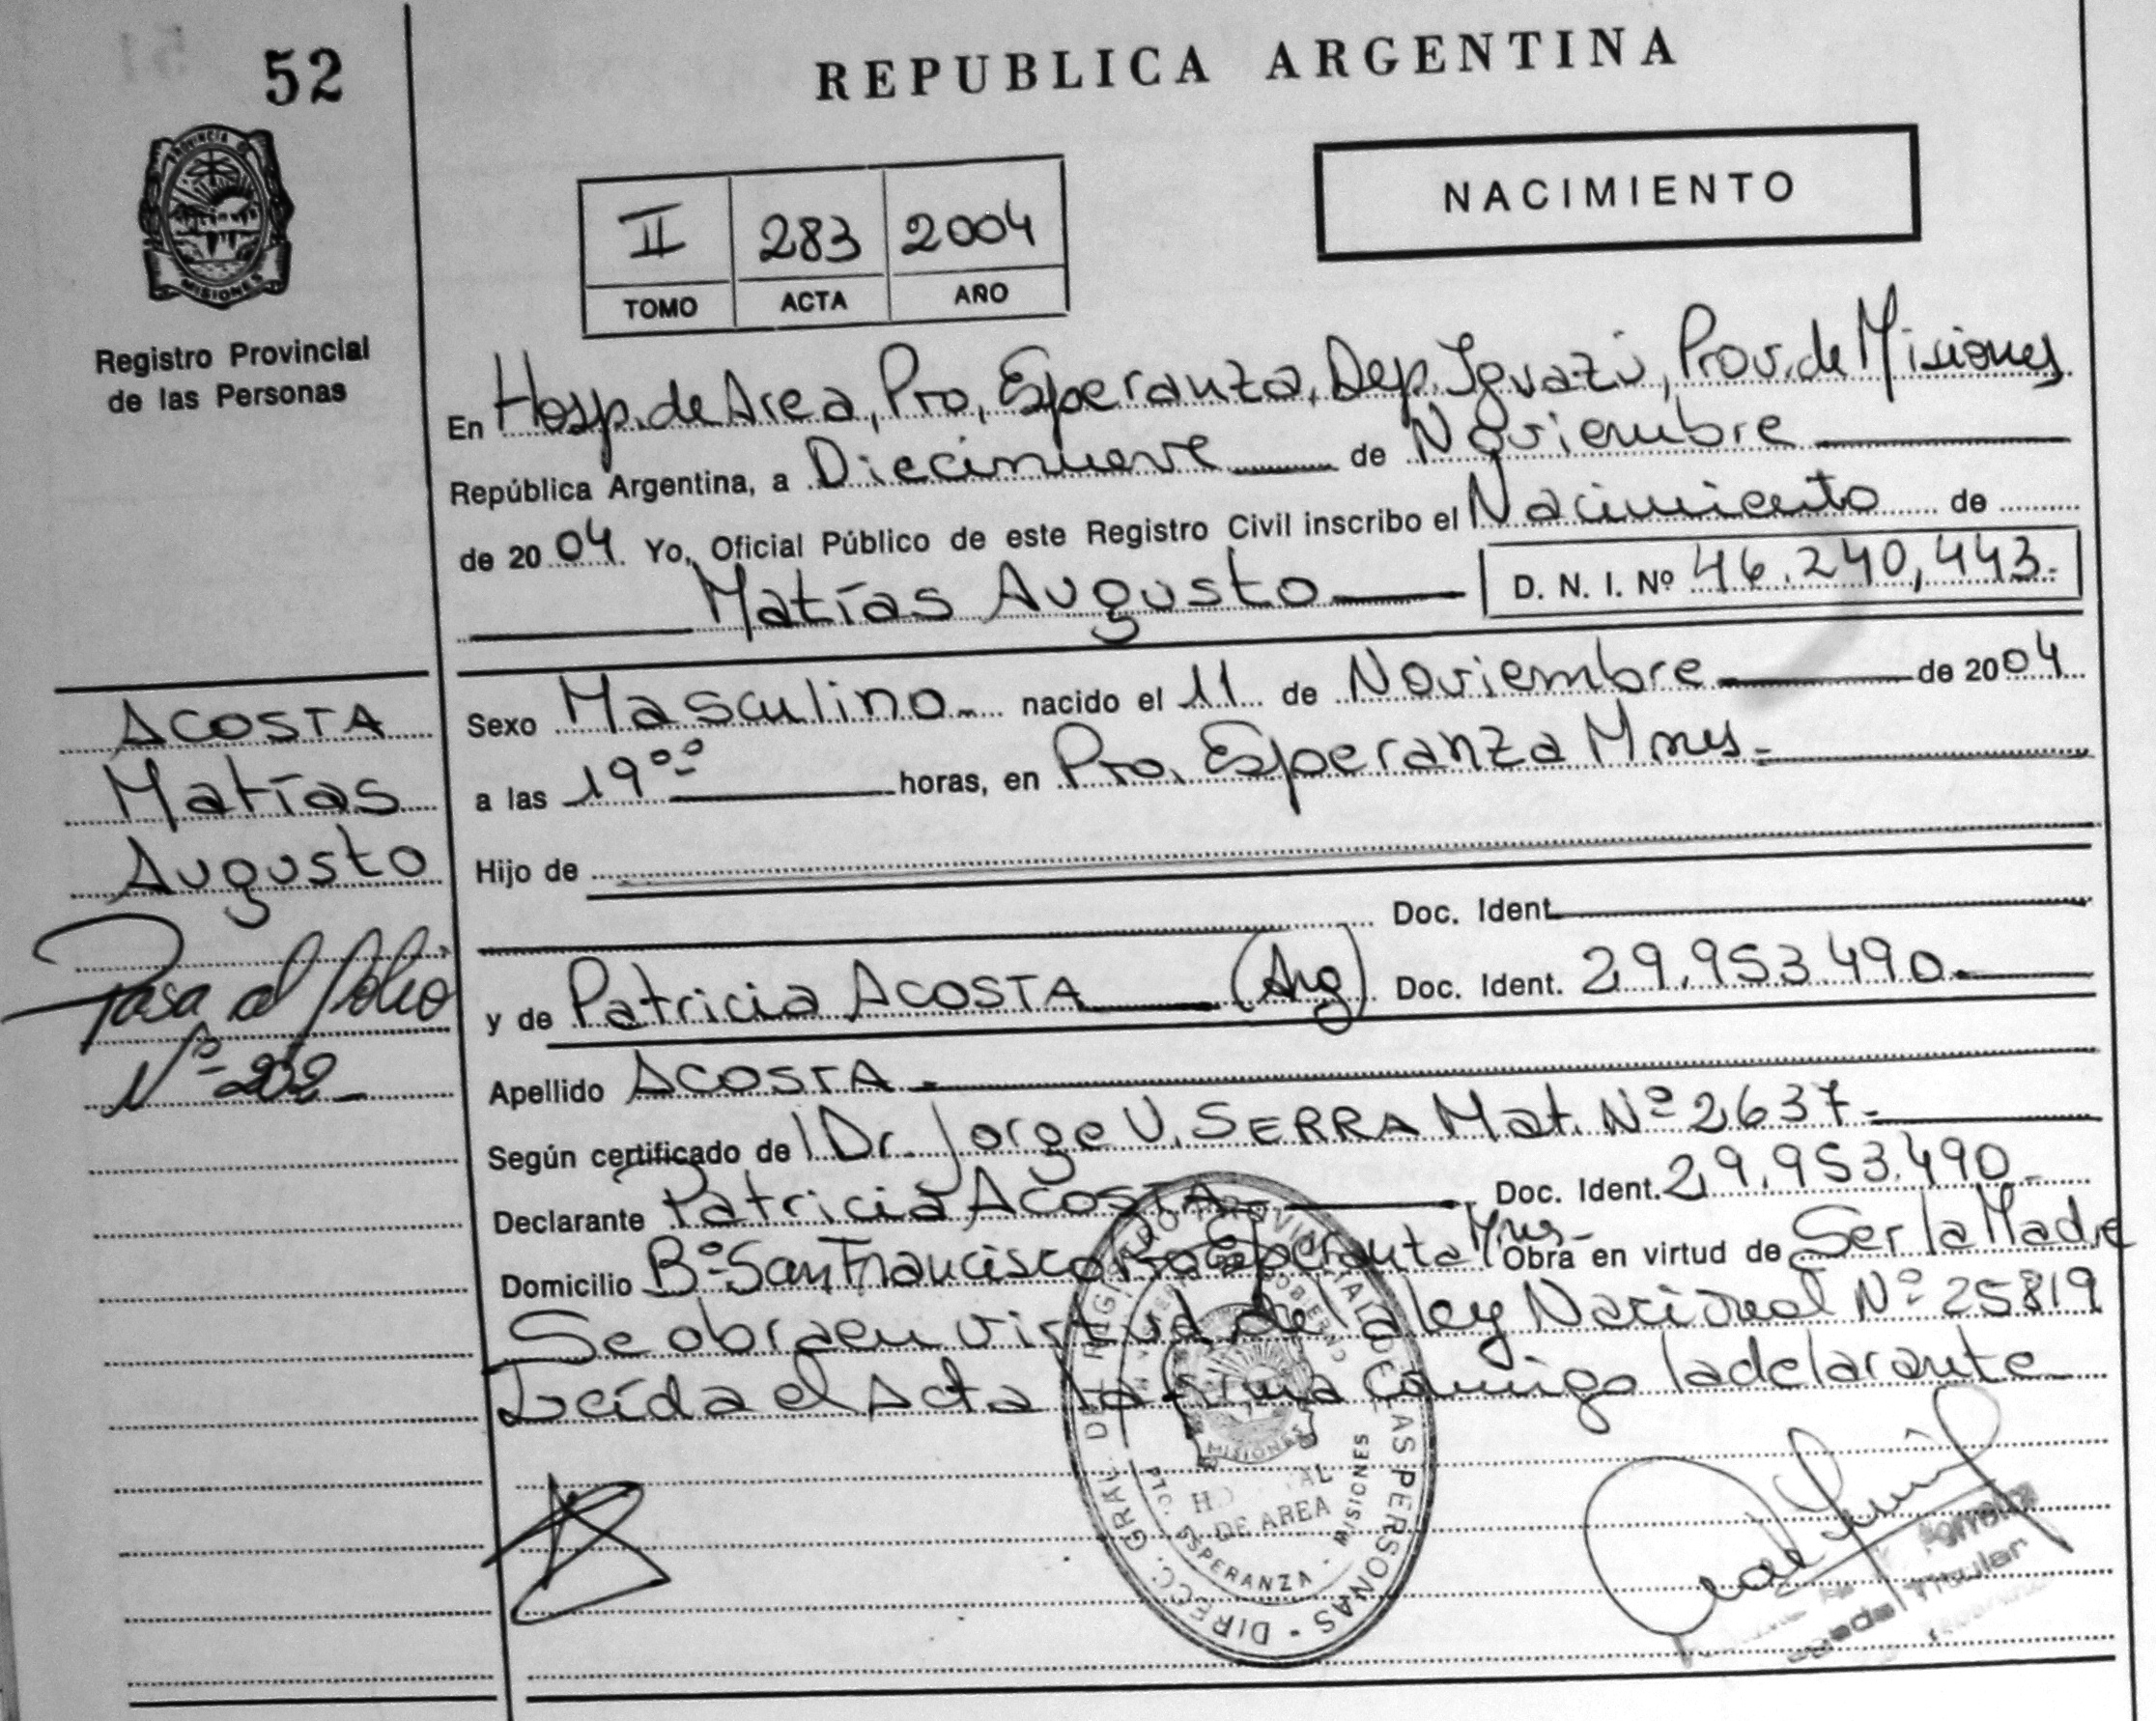 52
REPUBLICA ARGENTINA
PROVINCIA DE
MISIONES
Registro Provincial
de las Personas
NACIMIENTO
II 283 2004
TOMO ACTA AÑO
En Hosp. de Area, Pto, Esperanza, Dep. Iguazú, Prov. de Misiones
República Argentina, a Diecinueve de Noviembre
de 2004 Yo, Oficial Público de este Registro Civil inscribo el Nacimiento de
Matías Augusto D. N. I. Nº 46.240,443.
ACOSTA
Matías
Augusto
Pasa al folio
Nº 202
Sexo Masculino nacido el 11 de Noviembre de 2004
a las 19°° horas, en Pto. Esperanza Mnes.
Hijo de
Doc. Ident.
y de Patricia ACOSTA (Arg) Doc. Ident. 29.953.490
Apellido ACOSTA
Según certificado de Dr. Jorge V. SERRA Mat. Nº 2637
Declarante Patricia ACOSTA Doc. Ident. 29.953.490
Domicilio Bº San Francisco Pto Esperanza Mnes Obra en virtud de Ser la Madre
Se obra en virtud de la ley Nacional Nº 25819
Leída el Acta la firma conmigo la declarante
DIRECC. GRAL. DE REGISTRO PROVINCIAL DE LAS PERSONAS
MISIONES
DE AREA
ESPERANZA - MISIONES
Titular